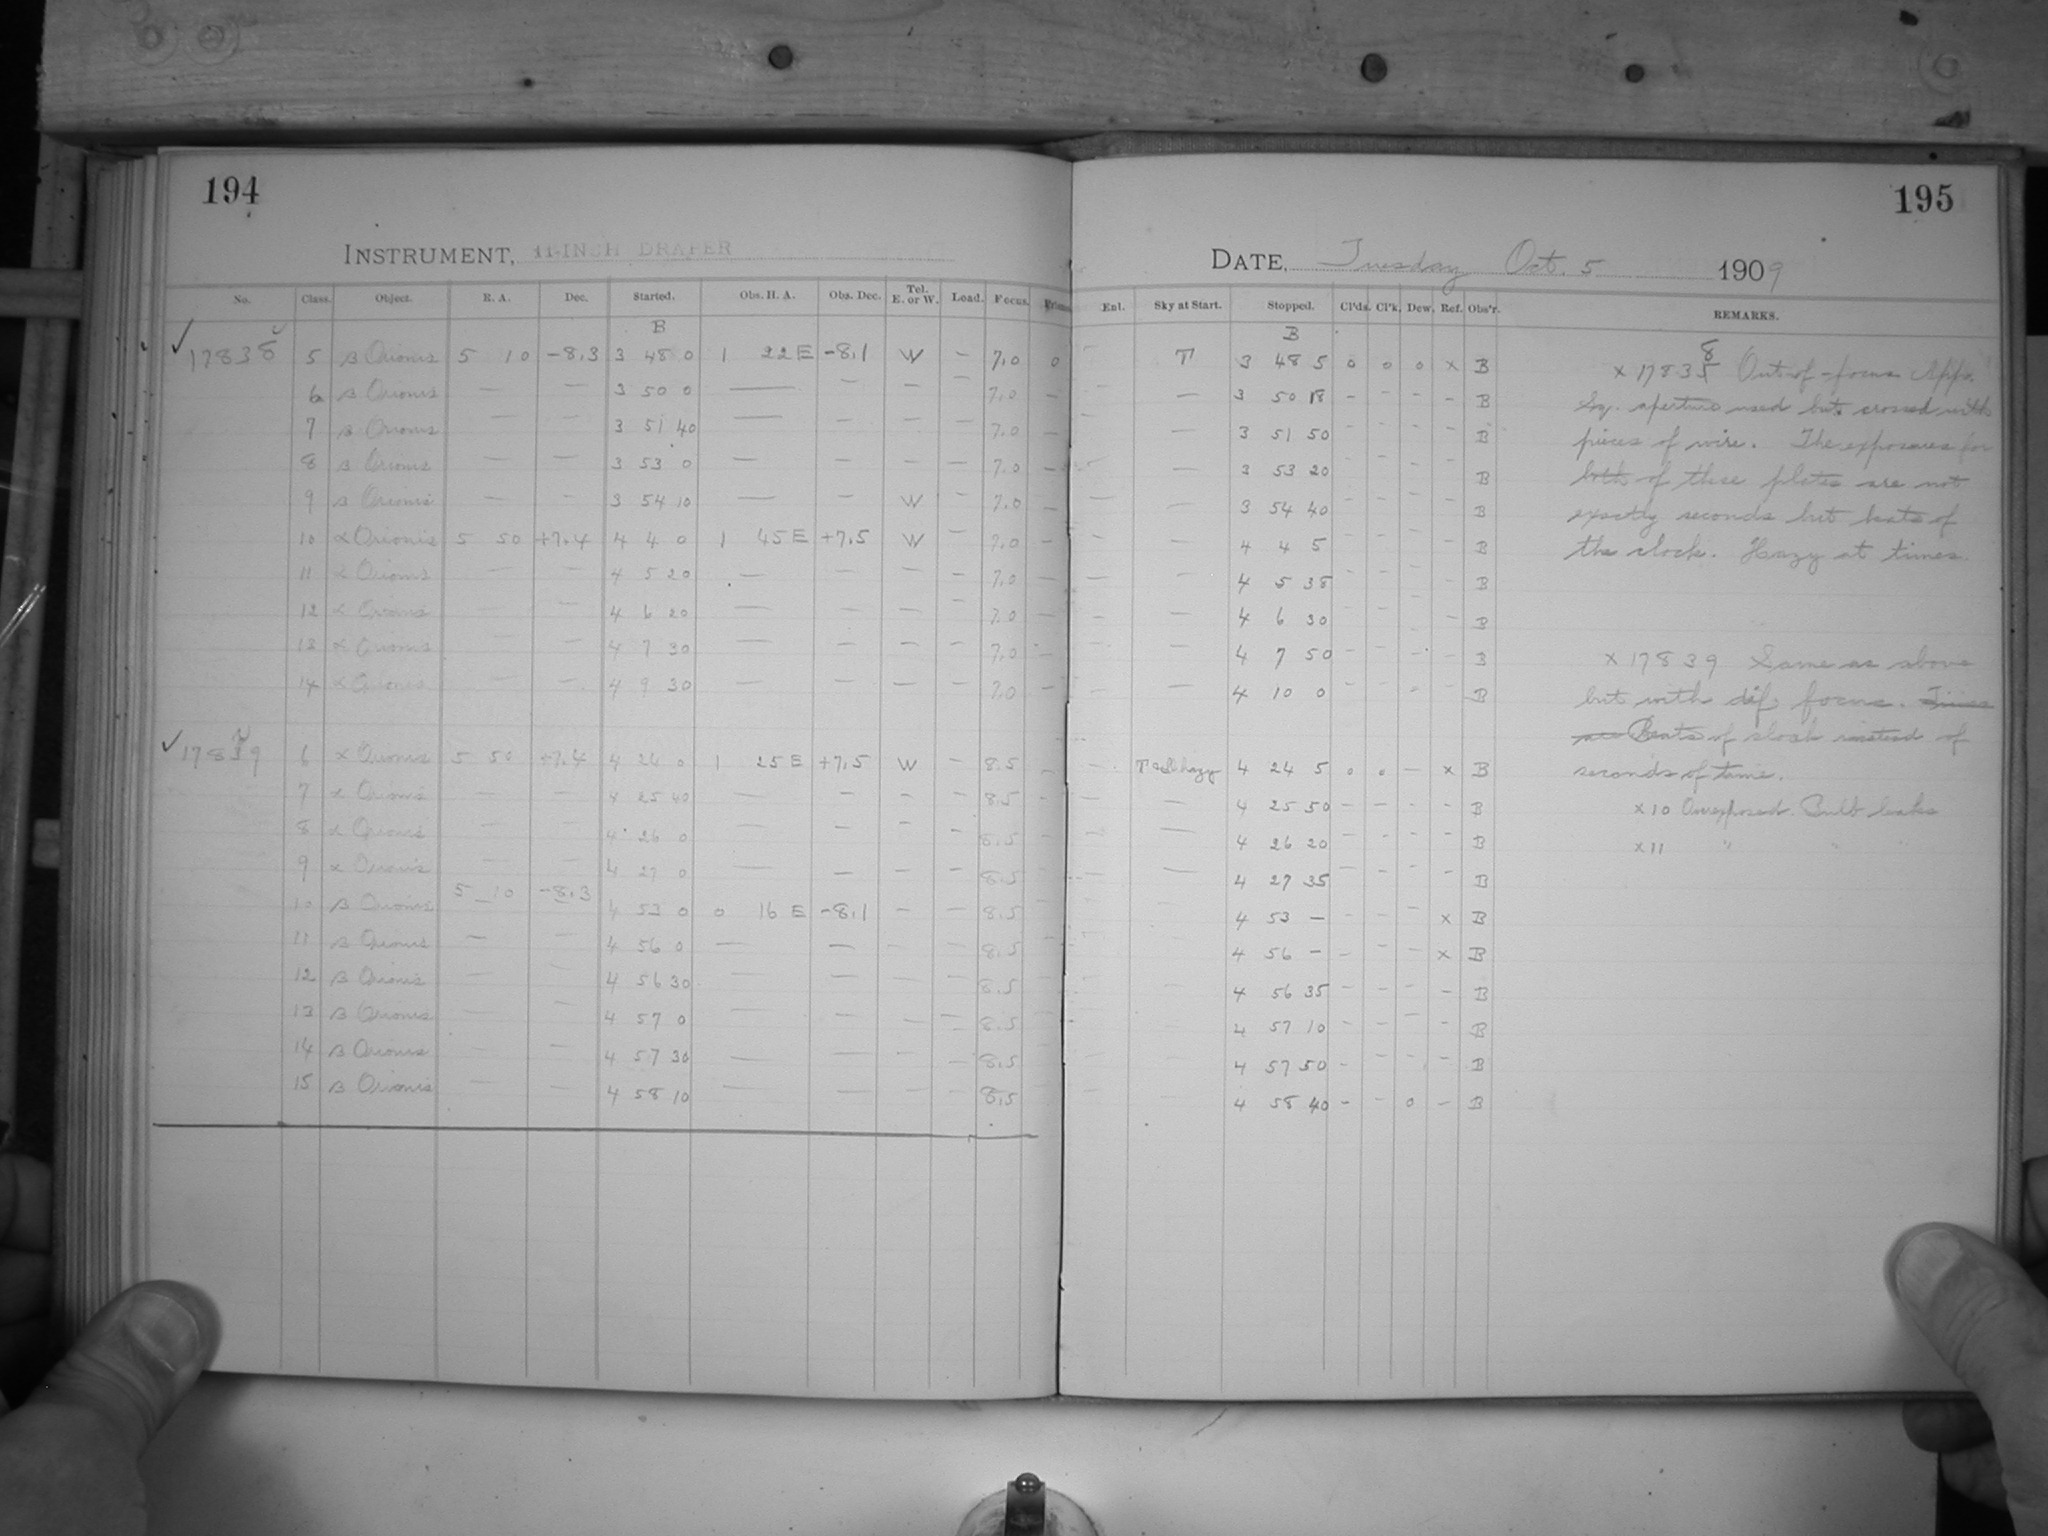 194
INSTRUMENT, 11-INCH DRAPER
No. Class. Object. R. A. Dec. Started. Obs. H. A. Obs. Dec. Tel. E. or W. Load. Focus.
B
✓ 17838 5 β Orionis 5 10 -8.3 3 48 0 1 22 E -8.1 W – 7.0 0
6 β Orionis — — 3 50 0 — – – – 7.0 –
7 β Orionis — — 3 51 40 — – – – 7.0 –
8 β Orionis — — 3 53 0 — – – – 7.0 –
9 β Orionis — – 3 54 10 — – W – 7.0 –
10 α Orionis 5 50 +7.4 4 4 0 1 45 E +7.5 W – 7.0 –
11 α Orionis — — 4 5 20 — – – – 7.0 –
12 α Orionis — — 4 6 20 — – – – 7.0
13 α Orionis — — 4 7 30 — – – – 7.0 –
14 α Orionis — — 4 9 30 — – – – 7.0 –
✓ 17839 6 α Orionis 5 50 +7.4 4 24 0 1 25 E +7.5 W – 8.5 –
7 α Orionis — — 4 25 40 — – – – 8.5 –
8 α Orionis — — 4 26 0 — – – – 8.5
9 α Orionis — — 4 27 0 — – – – 8.5
10 β Orionis 5 10 -8.3 4 53 0 0 16 E -8.1 – – 8.5
11 β Orionis — — 4 56 0 — – – – 8.5
12 β Orionis — — 4 56 30 — – – – 8.5
13 β Orionis — — 4 57 0 — – – – 8.5
14 β Orionis — — 4 57 30 — – – – 8.5
15 β Orionis — — 4 58 10 — – – – 8.5
195
DATE, Tuesday Oct. 5 1909
Enl. Sky at Start. Stopped. Cl'ds. Cl'k. Dew. Ref. Obs'r. REMARKS.
B
– T 3 48 5 0 0 0 x B
— 3 50 18 – – – – B
— 3 51 50 – – – – B
— 3 53 20 – – – – B
— 3 54 40 – – – – B
– 4 4 5 – – – – B
– 4 5 38 – – – – B
— 4 6 30 – – – – B
— 4 7 50 – – – – B
— 4 10 0 – – – – B
T & S. hazy 4 24 5 0 0 – x B
— 4 25 50 – – – – B
— 4 26 20 – – – – B
— 4 27 35 – – – – B
4 53 – – – – x B
4 56 – – – – x B
4 56 35 – – – – B
4 57 10 – – – – B
4 57 50 – – – – B
4 58 40 – – 0 – B
x 17838 Out-of-focus App.
Sq. aperture used but crossed with
pieces of wire. The exposures for
both of these plates are not
exactly seconds but beats of
the clock. Hazy at times.
x 17839 Same as above
but with dif. focus. Times
are Beats of clock instead of
seconds of time.
x 10 Overexposed. Bulb leaks
x 11 " "